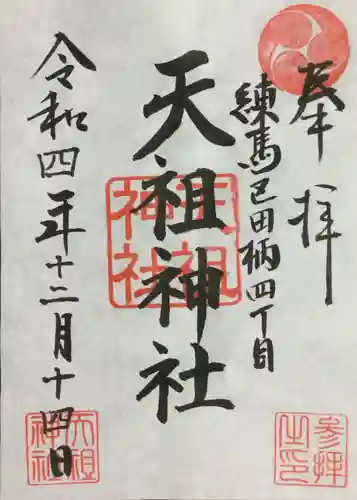 奉拝
練馬区田柄四丁目
天祖神社
令和四年十二月十四日
天祖神社
天祖神社
参拝之印